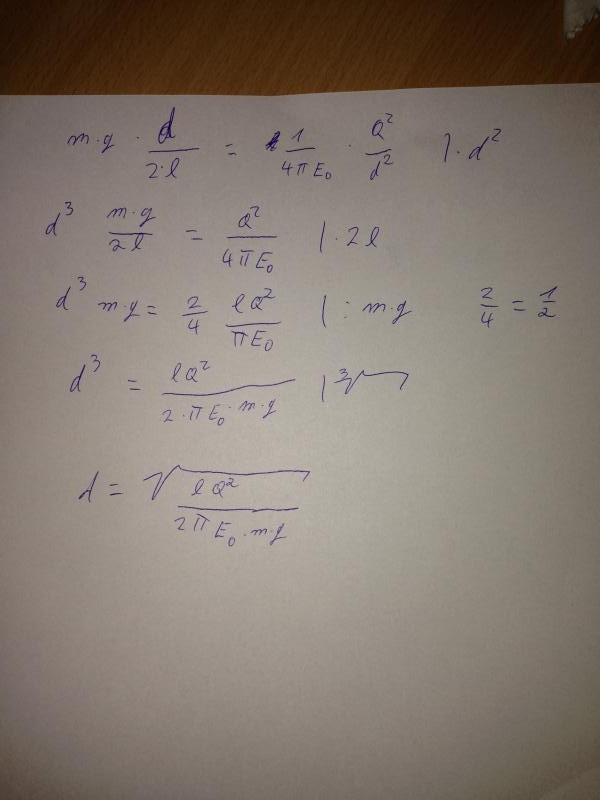 m·g · d/(2·l) = 1/(4πE₀) · Q²/d² |· d²
d³ m·g/(2l) = Q²/(4πE₀) |· 2l
d³ m·g = 2/4 lQ²/(πE₀) | : m·g 2/4 = 1/2
d³ = lQ²/(2·πE₀·m·g) | ³√
d = √(lQ²/(2πE₀·m·g))